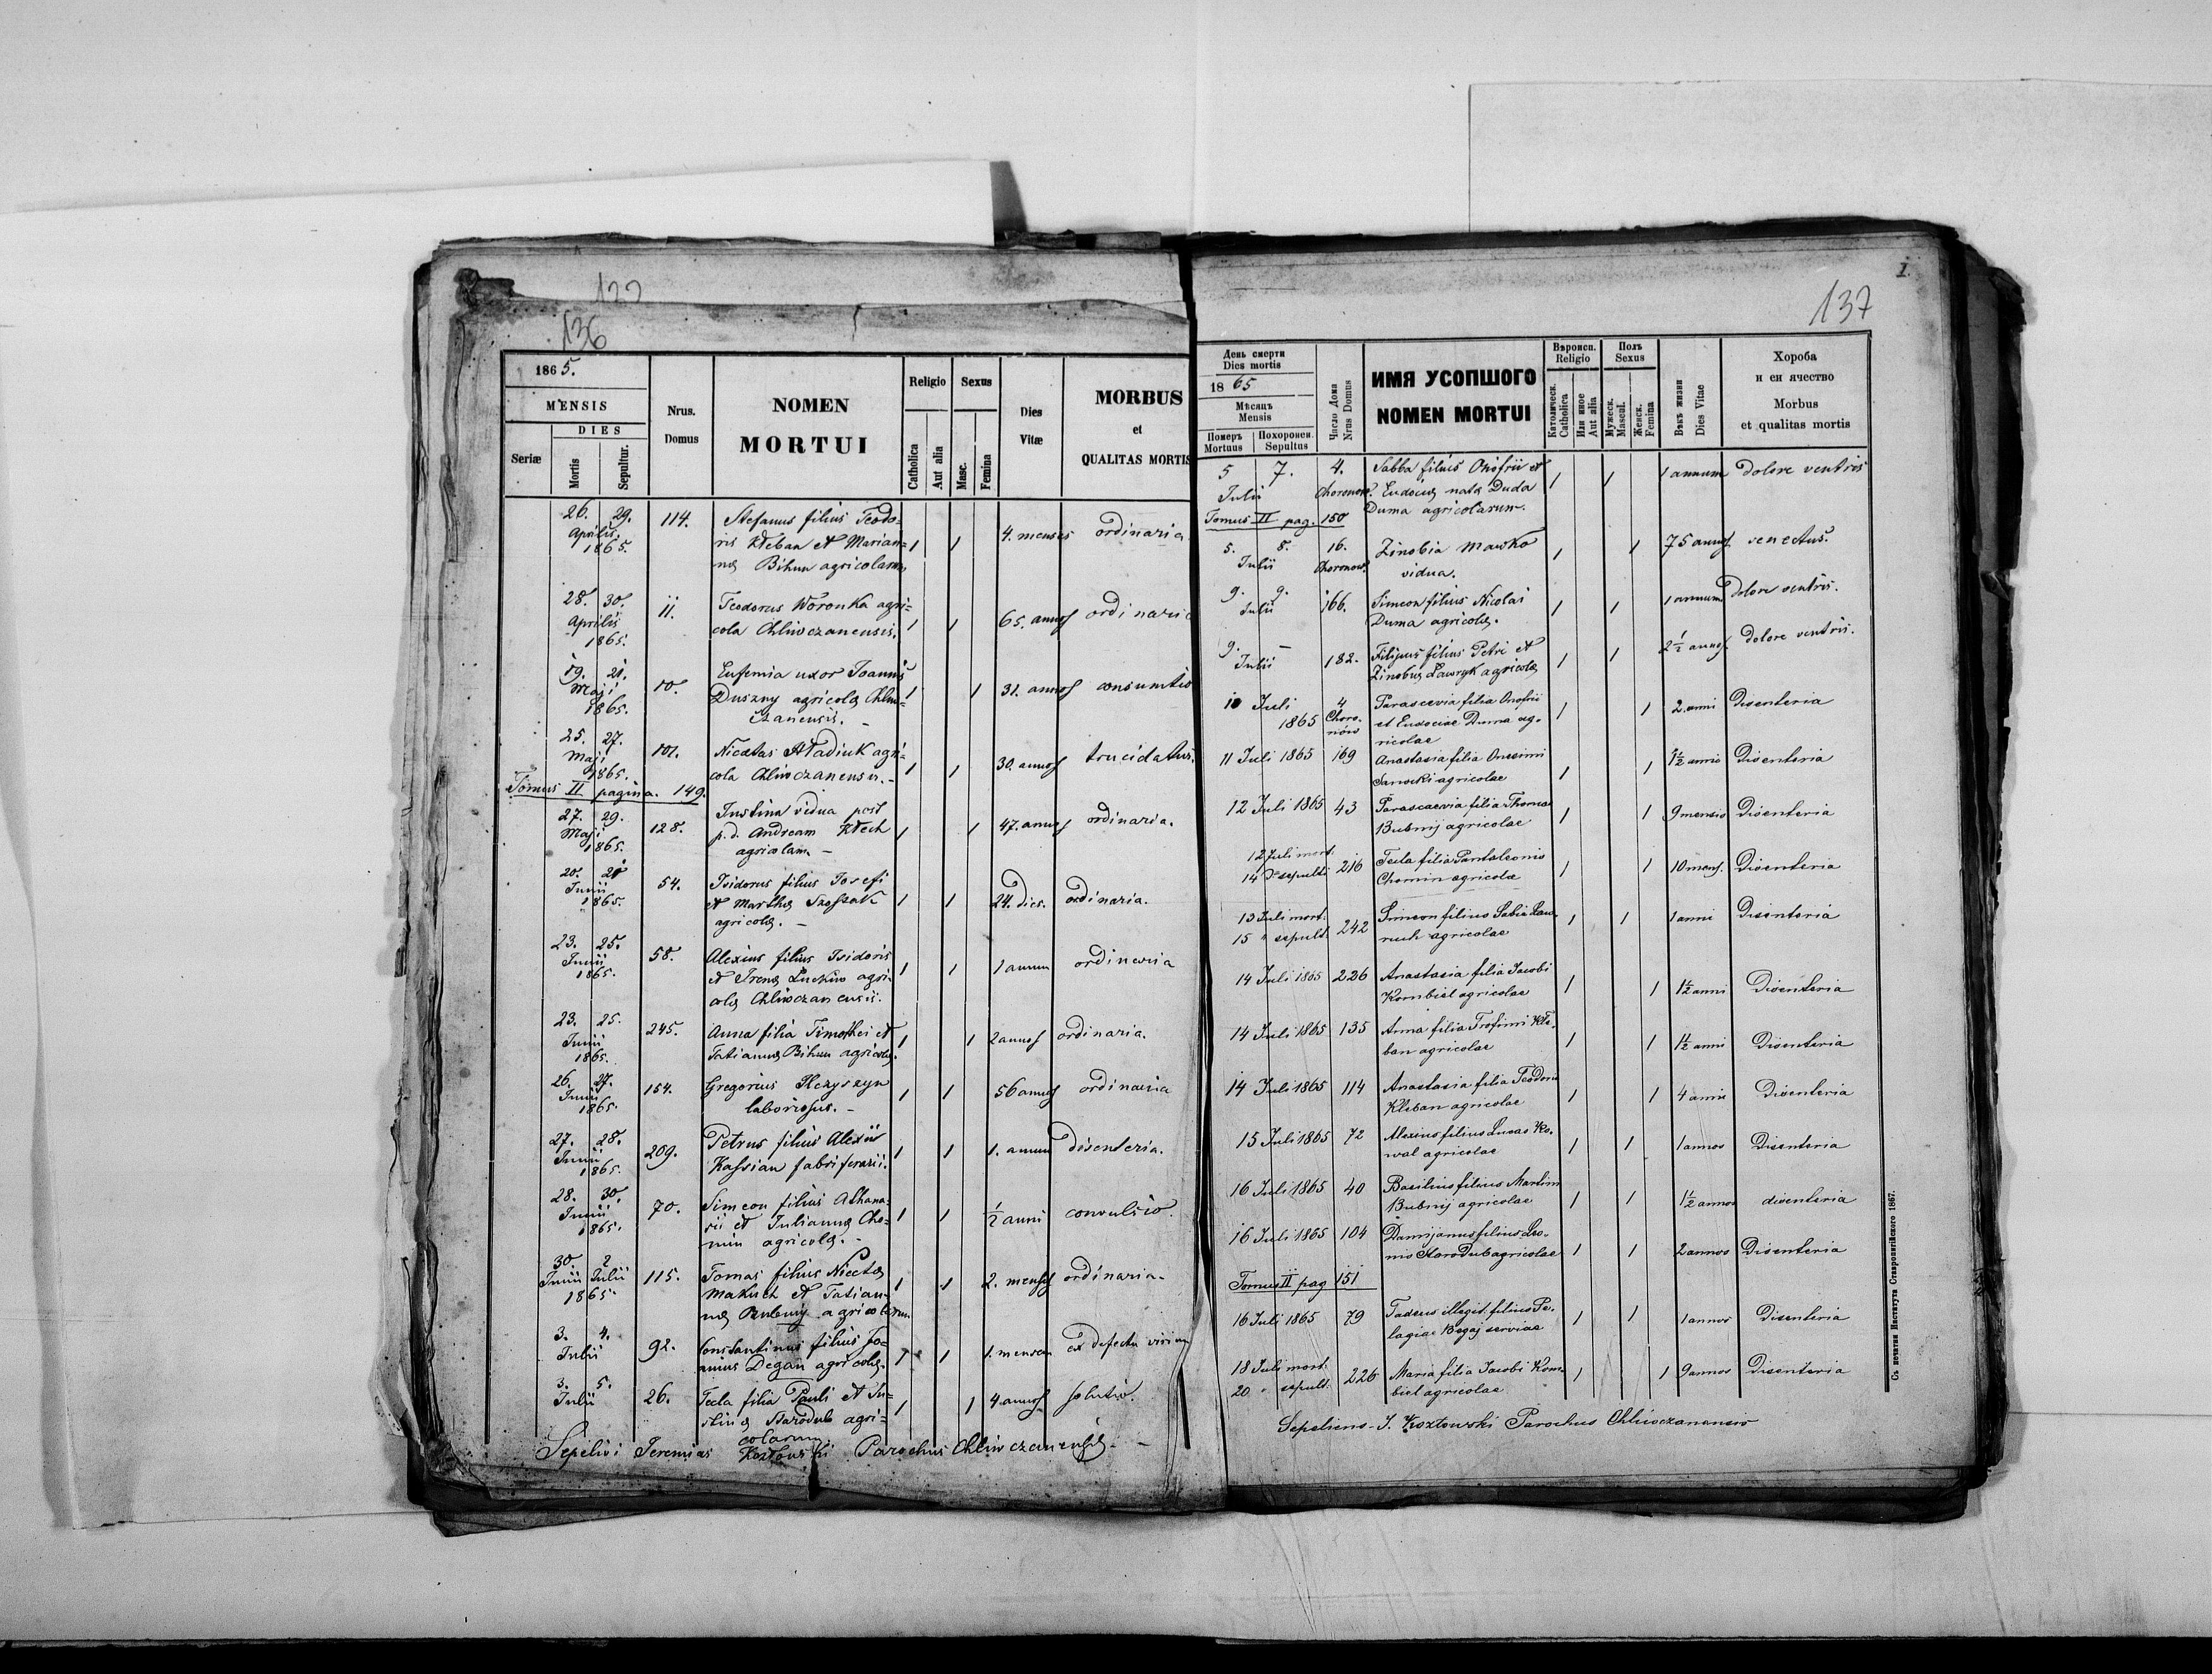 136
1865.
MENSIS
DIES
Seriæ
Mortis
Sepultur.
Nrus. Domus
NOMEN
MORTUI
Religio
Sexus
Catholica
Aut alia
Masc.
Femina
Dies
Vitæ
MORBUS
et
QUALITAS MORTIS
26. 29. 114. Stefanus filius Teodo=
Aprilis ris Kłeban et Marian= 1 1 4. menses ordinaria
1865. næ Bihun agricolarum
28. 30. 11. Teodorus Woronka agri=
Aprilis cola Chliwczanensis. 1 1 65. annos ordinaria
1865.
19. 21. Eufemia uxor Joannis
Maji 10. Duszny agricolæ Chliw= 1 1 31. annos consumtio
1865. czanensis. -
25. 27. 101. Nicetas Hładiuk agri=
Maji cola Chliwczanensis. - 1 1 30. annos trucidatus.
1865.
Tomus II pagina. 149.
27. 29. Justina vidua post
Maji 128. p. d. Andream Kłech 1 1 47. annos ordinaria.
1865. agricolam. -
20. 21 54. Isidorus filius Josefi
Junii et Marthæ 1 1 24. dies. ordinaria.
1865. agricolæ. -
23. 25. 58. Alexius filius Isidoris
Junii et Irenæ Luckiw agri= 1 1 1 annum ordinaria
1865. colæ Chliwczanensis.
23. 25. 245. Anna filia Timothei et
Junii Tatiannæ Bihun agricolæ. 1 1 2 annos ordinaria.
1865.
26. 27. 154. Gregorius
Junii laboriosus. - 1 1 56 annos ordinaria
1865.
27. 28. 209. Petrus filius Alexii
Junii Kassian fabri ferarii. 1 1 1. annum disenteria.
1865.
28. 30. 70. Simeon filius Athana=
Junii sii et Juliannæ Cho= 1 1 ½ anni convulsio.
1865. min agricolæ. -
30. 2 115. Tomas filius Nicetæ
Junii Julii Makuch et Tatian= 1 1 2. menses ordinaria.
1865 næ Bubnij agricolarum
3. 4. 92. Constantinus filius Jo=
Julii annis Degan agricolæ. 1 1 1. mensem ex defectu virium
3. 5. 26. Tecla filia Pauli et Ju=
Julii stinæ Starodub agri= 1 1 4. annos solutio.
colarum
Sepelivi Jeremias Kozłowski Parochus Chliwczanensis. -
1.
137
День смерти
Dies mortis
1865
Мѣсяць
Mensis
Померъ
Mortuus
Похоронен.
Sepultus
Число Дома
Nrus Domus
ИМЯ УСОПШОГО
NOMEN MORTUI
Вѣроисп.
Religio
Католическ.
Catholica
Или иное
Aut alia
Полъ
Sexus
Мужеск.
Mascul.
Женск.
Femina
Вѣкъ жизни
Dies Vitae
Хороба
и еи ячество
Morbus
et qualitas mortis
5 7. 4. Sabba filius Onofrii et 1 1 1 annum dolore ventris
Julii Choronow. Eudociæ natæ Duda
Duma agricolarum.
Tomus II pag. 150
5. 8. 16. Zinobia Mawko 1 1 75 annos senectus.
Julii Choronow. vidua.
9. 9. 166. Simeon filius Nicolai 1 1 1 annum dolore ventris.
Julii Duma agricolæ.
9. - 182. Filipus filius Petri et 1 1 2½ annos dolore ventris.
Julii Zinobiæ Ławryk agricolæ
10 Juli 4 Parascevia filia Onofrii
1865 Choro- et Eudociae Duma ag- 1 1 2 anni Disenteria
nów ricolae
11 Juli 1865 169 Anastasia filia Onesimi
Sanocki agricolae 1 1 1½ annis Disenteria
12 Juli 1865 43 Parascaevia filia Thomae
Bubnij agricolae 1 1 9 mensis Disenteria
12 Juli mort. 216 Tecla filia Pantaleonis
14 " sepult. Chomin agricolæ 1 1 10 mens. Disenteria
13 Juli mort. 242 Simeon filius Sabæ
15 " sepult. agricolae 1 1 1 anni Disenteria
14 Juli 1865 226 Anastasia filia Jacobi
Kornbiel agricolae 1 1 1½ anni Disenteria
14 Juli 1865 135 Anna filia Trofimi Kłe-
ban agricolae 1 1 1½ anni Disenteria
14 Juli 1865 114 Anastasia filia Teodoris
Kleban agricolae 1 1 4 annis Disenteria
15 Juli 1865 72 Alexius filius Lucas Ko-
wal agricolae 1 1 1 annos Disenteria
16 Juli 1865 40 Basilius filius Martini
Bubnij agricolae 1 1 1½ annos disenteria
16 Juli 1865 104 Damijanus filius Leo-
nis Starodub agricolae 1 1 2 annos Disenteria
Tomus II pag 151
16 Juli 1865 79 Tadeus illegit. filius Pe-
lagiae Begaj serviae 1 1 1 annos Disenteria
18 Juli mort. 226 Maria filia Jacobi Korn-
20 " sepult. biel agricolae 1 1 9 annos Disenteria
Sepeliens J. Kozłowski Parochus Chliwczanensis
Съ печатни Института Ставропигійского 1867.